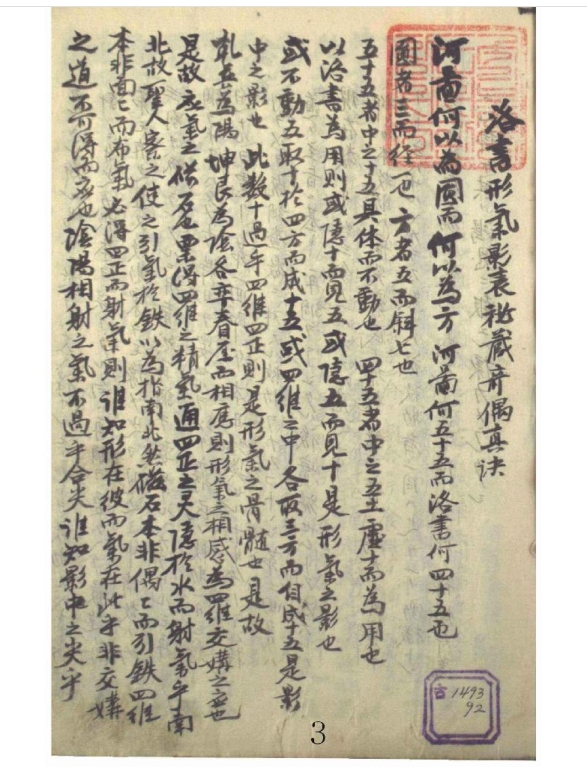 洛書形氣影表秘藏奇偶真訣
河啚何以為圓而何以為方河啚何五十五而洛書何四十五也
圓者三而徑一也方者五而斜七也
五十五者中之十五具体而不動也四十五者中之五土虛十而為用也
以洛書為用則或隱十而見五或隱五而見十是形氣之影也
或不動五取十於四方而成十五或四維之中各取三方而自成十五是影
中之影也此数十過乎四維四正則是形氣之骨髓也是故
乾巽為陽坤艮為陰各弃眷屋而相應則形氣之相感為四維交媾之也
是故應氣之磁石也禀得四維之精氣通四正之灵隱於水而射氣乎南
北故聖人察之使之引氣於鉄以為指南北然磁石本非偶々而引鉄四維
本非面々而布氣必得四正而射氣則誰知形在彼而氣在此乎非交媾
之道不可得而交也陰陽相射之氣不過乎合尖誰知影中之尖乎
古 1493
92
3